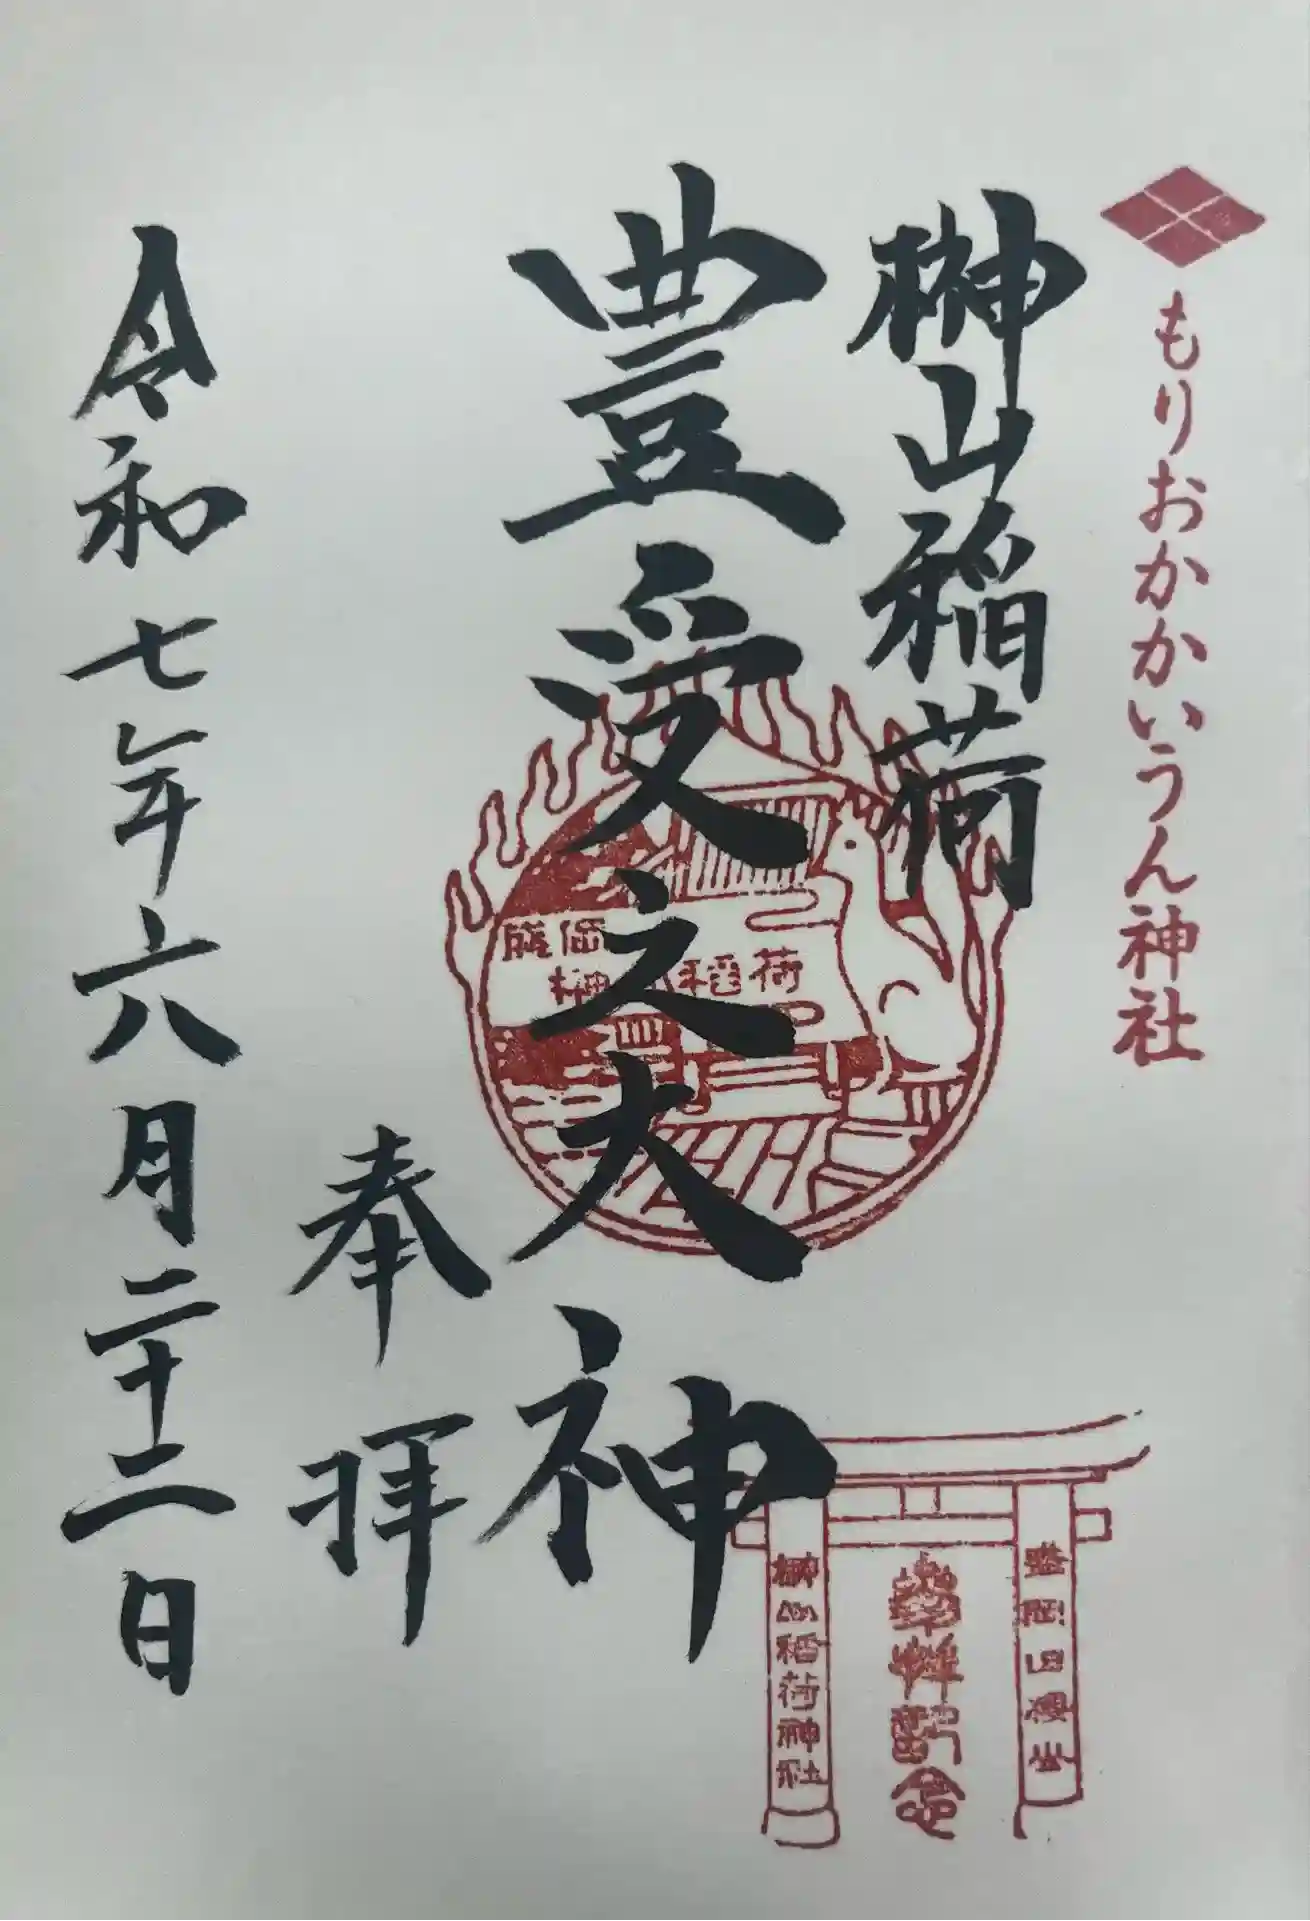 もりおかかいうん神社
榊山稲荷
豊受之大神
奉拝
令和七年六月二十二日
盛岡
榊山稲荷
参拝記念
榊山稲荷神社